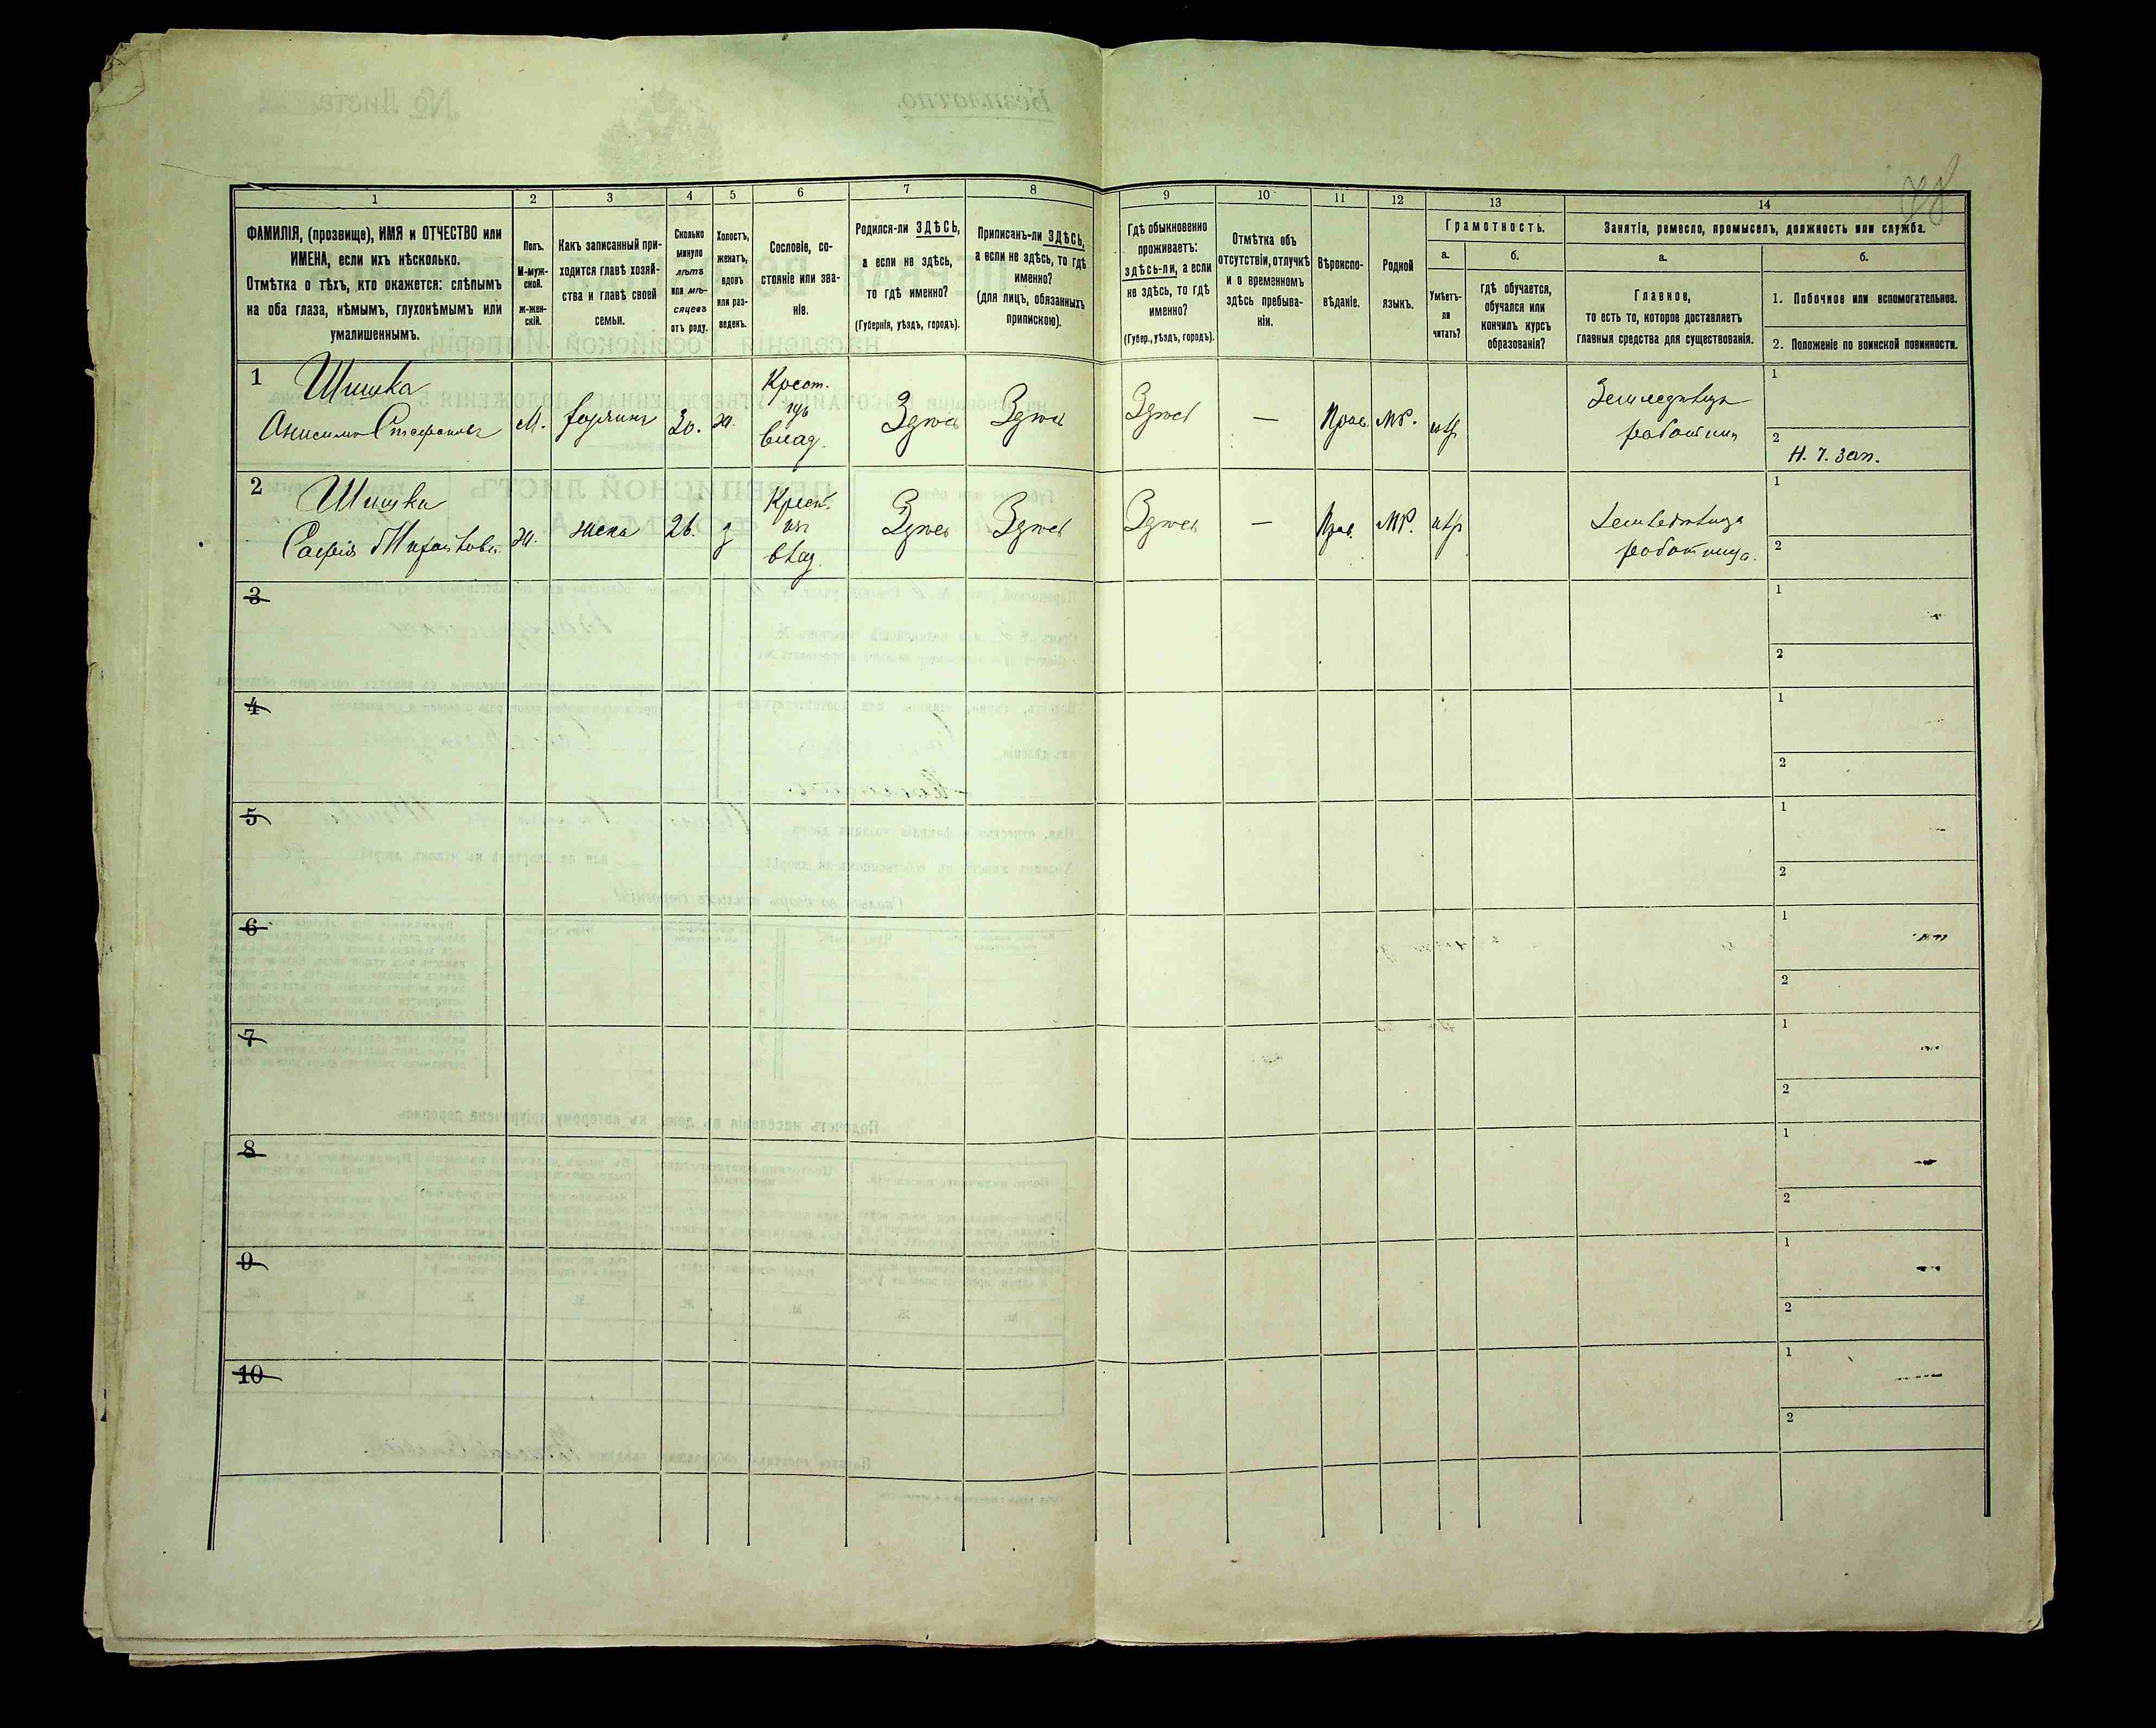 28
1
2
3
4
5
6
7
8
9
10
11
12
13
14
ФАМИЛІЯ, (прозвище), ИМЯ и ОТЧЕСТВО или
ИМЕНА, если ихъ нѣсколько.
Отмѣтка о тѣхъ, кто окажется: слѣпымъ
на оба глаза, нѣмымъ, глухонѣмымъ или
умалишеннымъ.
Полъ.
М-муж-
ской.
ж-жен-
скій.
Какъ записанный при-
ходится главѣ хозяй-
ства и главѣ своей
семьи.
Сколько
минуло
лѣтъ
или мѣ-
сяцевъ
отъ роду.
Холостъ,
женатъ,
вдовъ
или раз-
веденъ.
Сословіе, со-
стояніе или зва-
ніе.
Родился-ли ЗДѢСЬ,
а если не здѣсь,
то гдѣ именно?
(Губернія, уѣздъ, городъ).
Приписанъ-ли ЗДѢСЬ,
а если не здѣсь, то гдѣ
именно?
(для лицъ, обязанныхъ
припискою).
Гдѣ обыкновенно
проживаетъ:
здѣсь-ли, а если
не здѣсь, то гдѣ
именно?
(Губер., уѣздъ, городъ).
Отмѣтка объ
отсутствіи, отлучкѣ
и о временномъ
здѣсь пребыва-
ніи.
Вѣроиспо-
вѣданіе.
Родной
языкъ.
Грамотность.
а.
Умѣетъ-
ли
читать?
б.
гдѣ обучается,
обучался или
кончилъ курсъ
образованія?
Занятіе, ремесло, промыселъ, должность или служба.
а.
Главное,
то есть то, которое доставляетъ
главныя средства для существованія.
б.
1. Побочное или вспомогательное.
2. Положеніе по воинской повинности.
1
Шишка
Анисимъ Стефановъ
М.
30.
ж.
Крест.
изъ
влад.
Здѣсь
Здѣсь
Здѣсь
—
Прав.
МР.
нѣт
Земледѣлецъ
работник
1
2
Н. 7. Зап.
2
Шишка
Софія
ж.
жена
26.
з
Крест.
из
влад.
Здѣсь
Здѣсь
Здѣсь
—
Прав.
МР.
нѣт
Земледѣлица
работница.
1
2
3
1
2
4
1
2
5
1
2
6
1
2
7
1
2
8
1
2
9
1
2
10
1
2